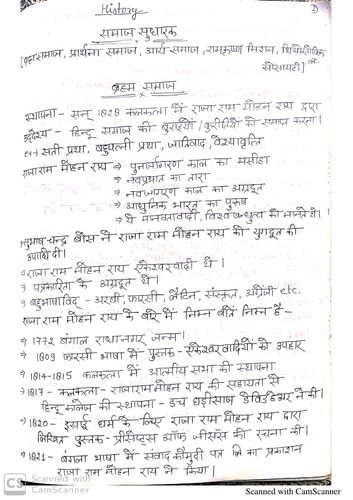 History
समाज सुधारक
[ब्रह्मसमाज, प्रार्थना समाज, आर्य समाज, रामकृष्ण मिशन, थियोसोफिकल सोसायटी]
ब्रहम समाज
स्थापना - सन् 1828 कलकत्ता में राजा राम मोहन राय द्वारा
उद्देश्य - हिन्दू समाज की बुराईयों / कुरीतियों को समाप्त करना।
सती प्रथा, बहुपत्नी प्रथा, जातिवाद, वैश्यावृति
राजा राम मोहन राय ⇒ पुनर्जागरण काल का मसीहा
⇒ नवप्रभात का तारा
⇒ नवजागरण काल का अग्रदूत
⇒ आधुनिक भारत का पुरुष
⇒ ये मानवतावादी, विश्व बन्धुत्व को मानते थे।
सुभाष चन्द्र बोस ने राजा राम मोहन राय को युगदूत की
उपाधि दी।
→ राजा राम मोहन राय ऐकेश्वरवादी थे।
→ पत्रकारिता के अग्रदूत थे।
→ बहुभाषाविद - अरबी, फारसी, लेटिन, संस्कृत, अंग्रेजी etc.
राजा राम मोहन राय के बारे में निम्न बातें निम्न है -
→ 1772 बंगाल राधानगर जन्म।
→ 1809 फारसी भाषा में पुस्तक - ऐकेश्वरवादियों को उपहार
→ 1814-1815 कलकत्ता में आत्मीय सभा की स्थापना
→ 1817 - कलकत्ता - राजा राम मोहन राय की सहायता से
हिन्दू कालेज की स्थापना - डच घड़ीसाज डेविड हेअर ने की।
→ 1820 - इसाई धर्म के लिए राजा राम मोहन राय द्वारा
लिखित पुस्तक - प्रीसेप्टस ऑफ जीसस की रचना की।
→ 1821 - बंगला भाषा में संवाद कौमुदी पत्र का प्रकाशन
राजा राम मोहन राय ने किया।
CS Scanned with CamScanner
Scanned with CamScanner